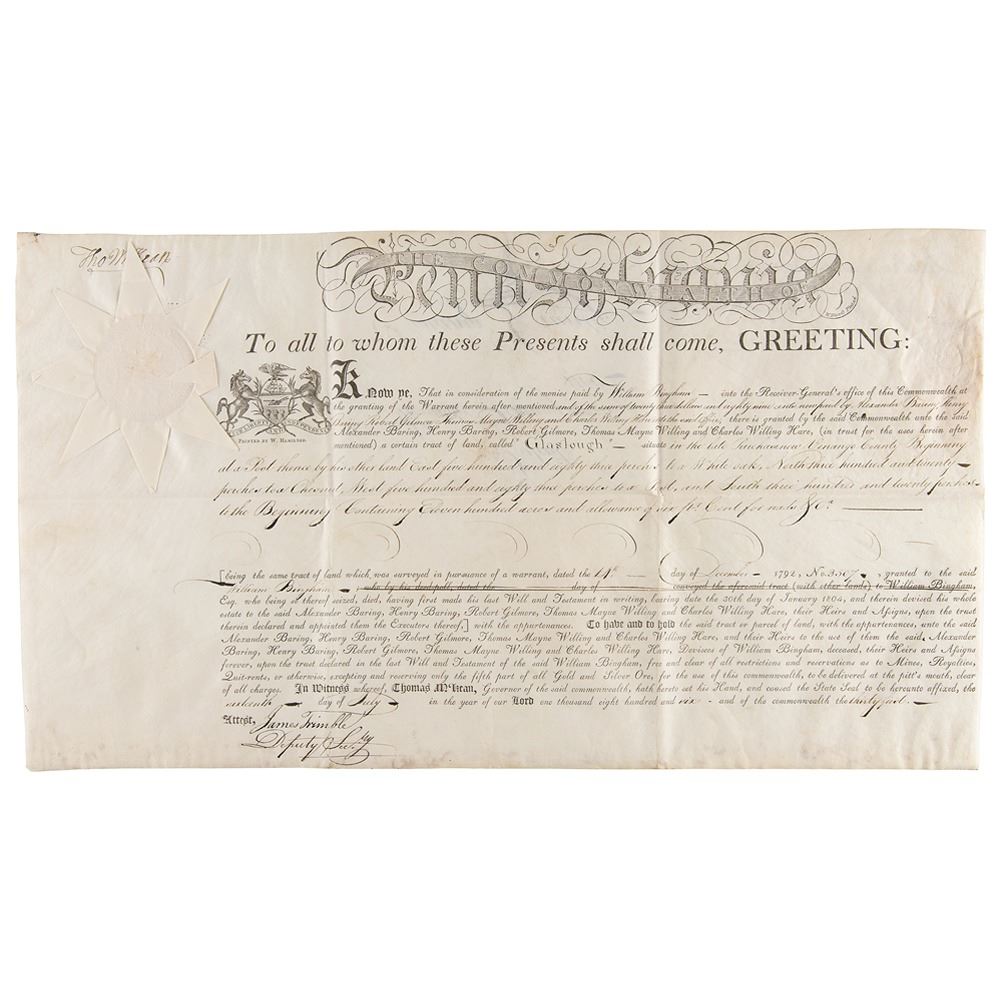 Tho M:Kean
THE COMMONWEALTH OF
Pennsylvania
To all to whom these Presents shall come, GREETING:
Know ye, That in consideration of the monies paid by William Bingham — into the Receiver-General's office of this Commonwealth at
the granting of the Warrant herein after mentioned, and of the sum of twenty two dollars and eighty nine cents now paid by Alexander Baring Henry
Baring Robert Gilmore Thomas Mayne Willing and Charles Willing Hare to the said office, there is granted by the said Commonwealth unto the said
Alexander Baring, Henry Baring, Robert Gilmore, Thomas Mayne Willing and Charles Willing Hare, (in trust for the uses herein after
mentioned) a certain tract of land, called "Glaslough" — situate in the late Purchase now Venango County Beginning
PRINTED BY W. HAMILTON.
at a Post thence by his other land East five hundred and eighty three perches to a White oak, North three hundred and twenty —
perches to a Chesnut, West five hundred and eighty three perches to a Post, and South three hundred and twenty perches
to the Beginning Containing Eleven hundred acres and allowance of six pr Cent for roads &c. —
[being the same tract of land which was surveyed in pursuance of a warrant, dated the 14th — day of December — 1792, No. 3507 — , granted to the said
William Bingham — , who by his deed poll, dated the day of conveyed the aforesaid tract (with other lands) to William Bingham,
Esq. who being so thereof seized, died, having first made his last Will and Testament in writing, bearing date the 30th day of January 1804, and therein devised his whole
estate to the said Alexander Baring, Henry Baring, Robert Gilmore, Thomas Mayne Willing and Charles Willing Hare, their Heirs and Assigns, upon the trust
therein declared and appointed them the Executors thereof,] with the appurtenances. To have and to hold the said tract or parcel of land, with the appurtenances, unto the said
Alexander Baring, Henry Baring, Robert Gilmore, Thomas Mayne Willing and Charles Willing Hare, and their Heirs to the use of them the said, Alexander
Baring, Henry Baring, Robert Gilmore, Thomas Mayne Willing and Charles Willing Hare, Devisees of William Bingham, deceased, their Heirs and Assigns
forever, upon the trust declared in the last Will and Testament of the said William Bingham, free and clear of all restrictions and reservations as to Mines, Royalties,
Quit-rents, or otherwise, excepting and reserving only the fifth part of all Gold and Silver Ore, for the use of this commonwealth, to be delivered at the pitt's mouth, clear
of all charges. In Witness whereof, Thomas M'Kean, Governor of the said commonwealth, hath hereto set his Hand, and caused the State Seal to be hereunto affixed, the
sixteenth — day of July — in the year of our Lord one thousand eight hundred and six — and of the commonwealth the thirty first. —
Attest, James Trimble
Deputy Secry